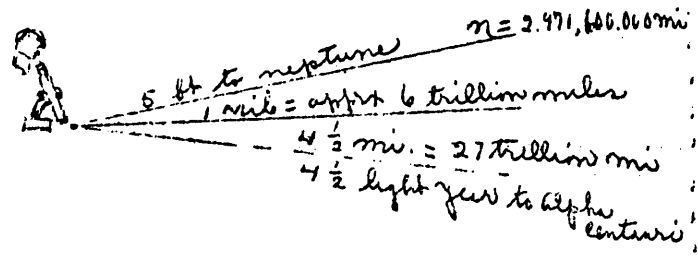 n = 2.971,600.000 mi
5 ft to neptune
1 mile = apprx 6 trillion miles
4 1/2 mi. = 27 trillion mi
4 1/2 light year to alpha
centauri